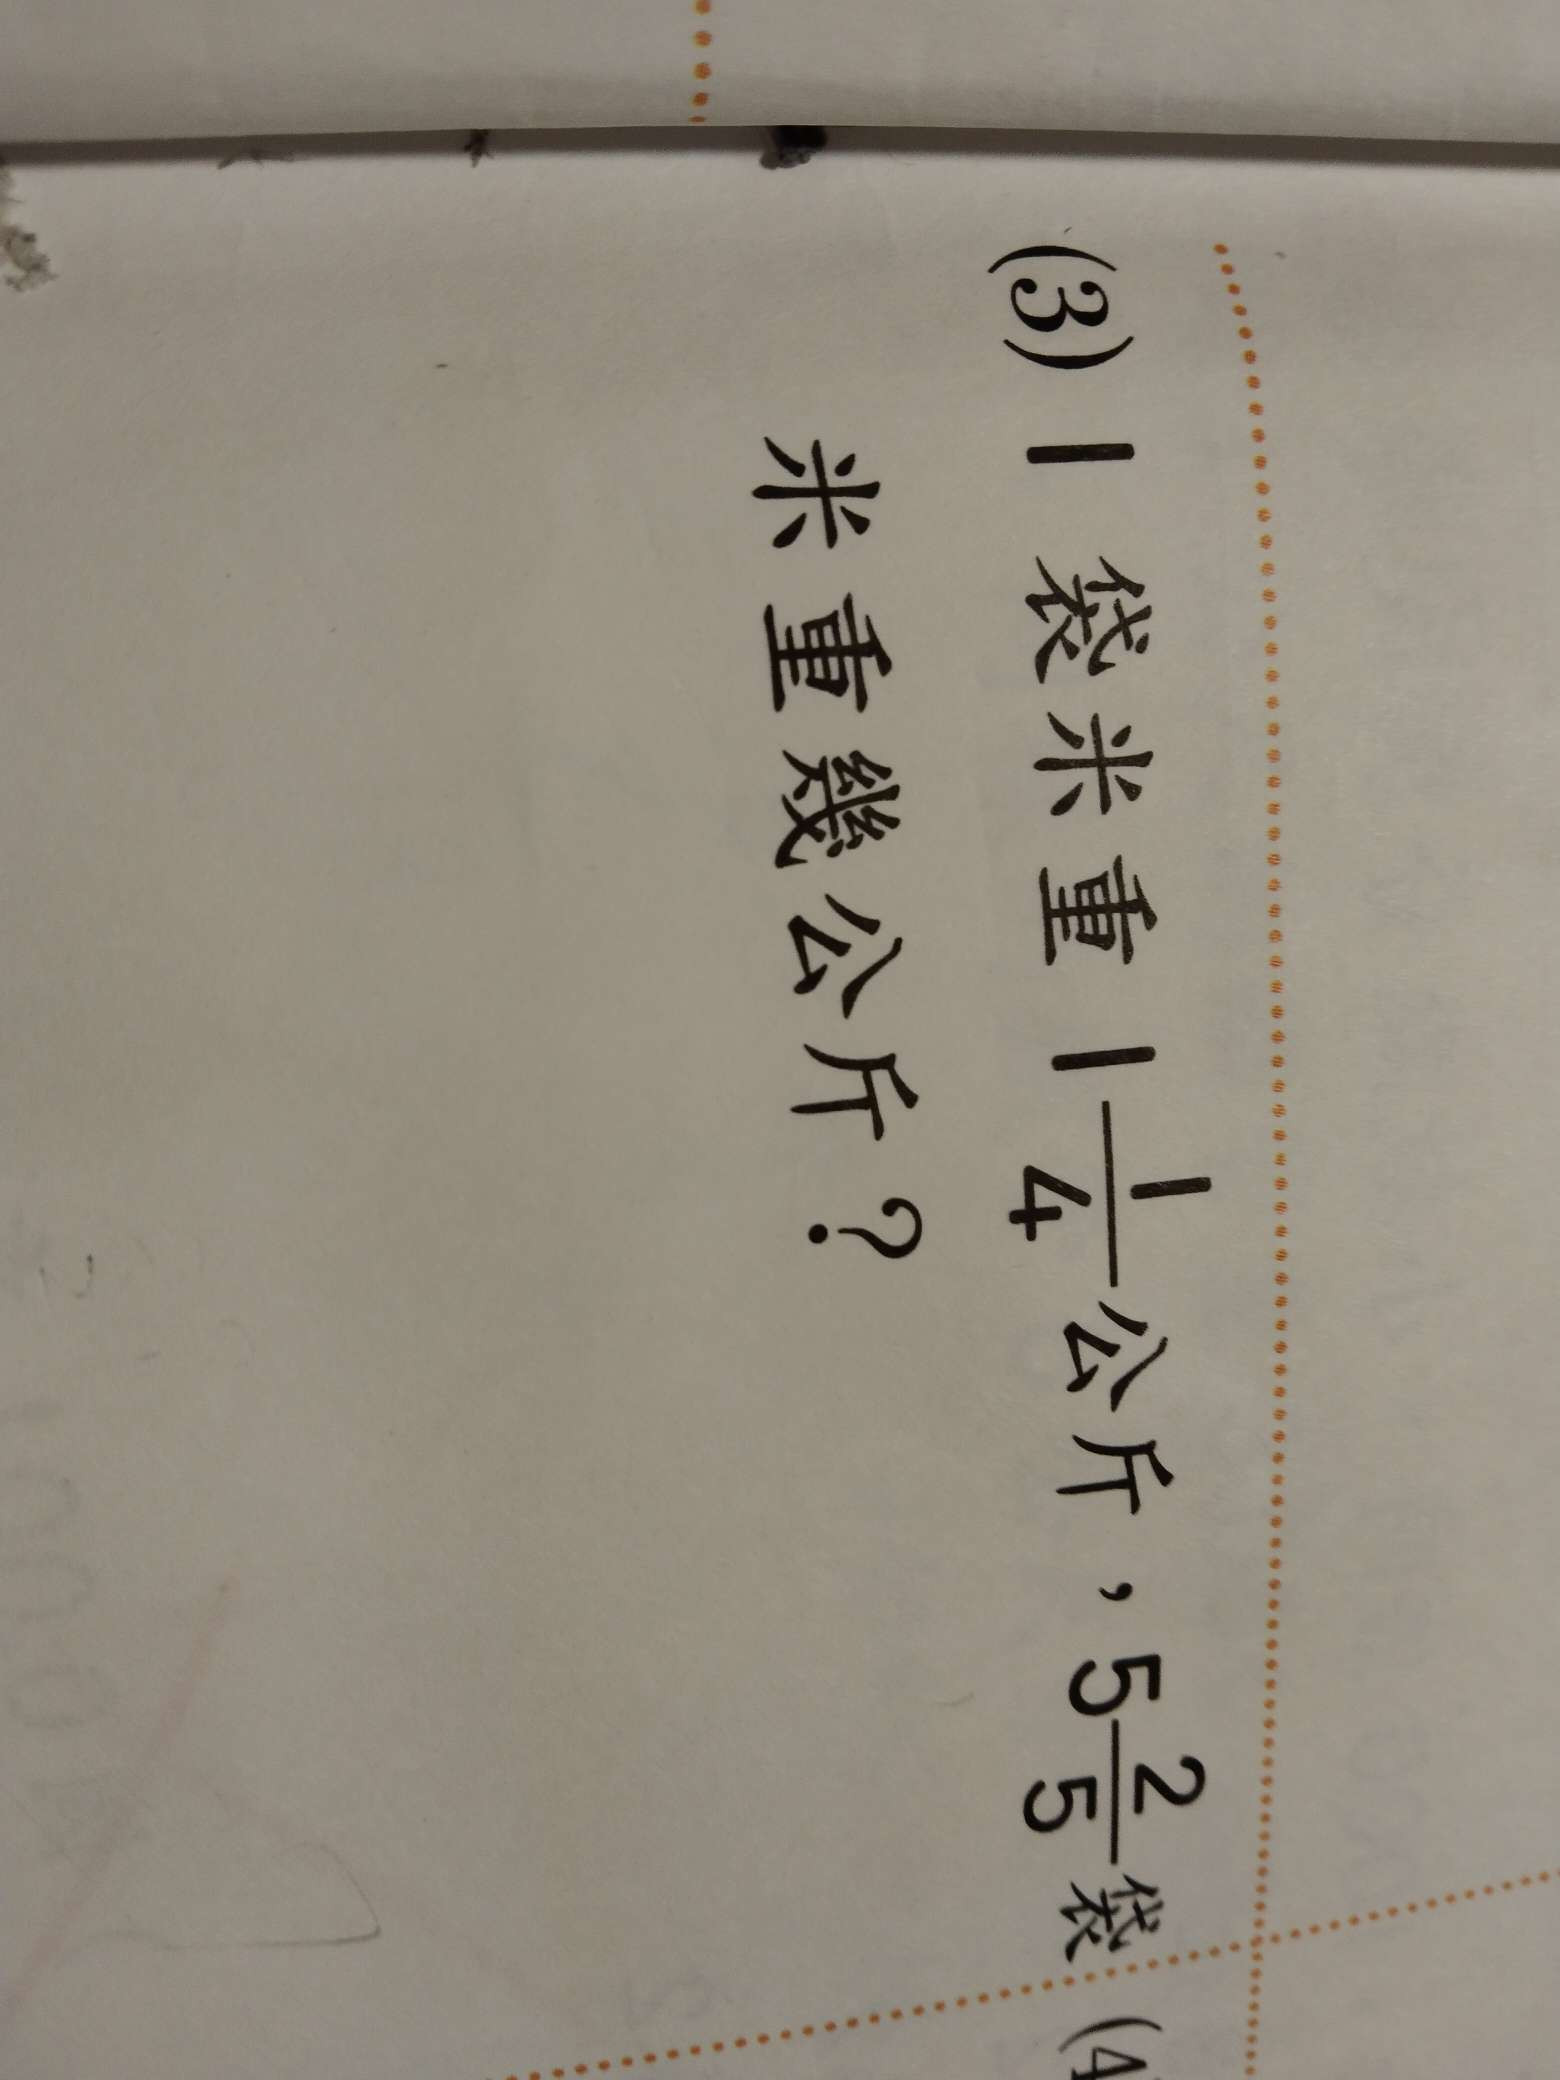 (3) 1 袋米重 1 1/4 公斤，5 2/5 袋
米重幾公斤？
(4